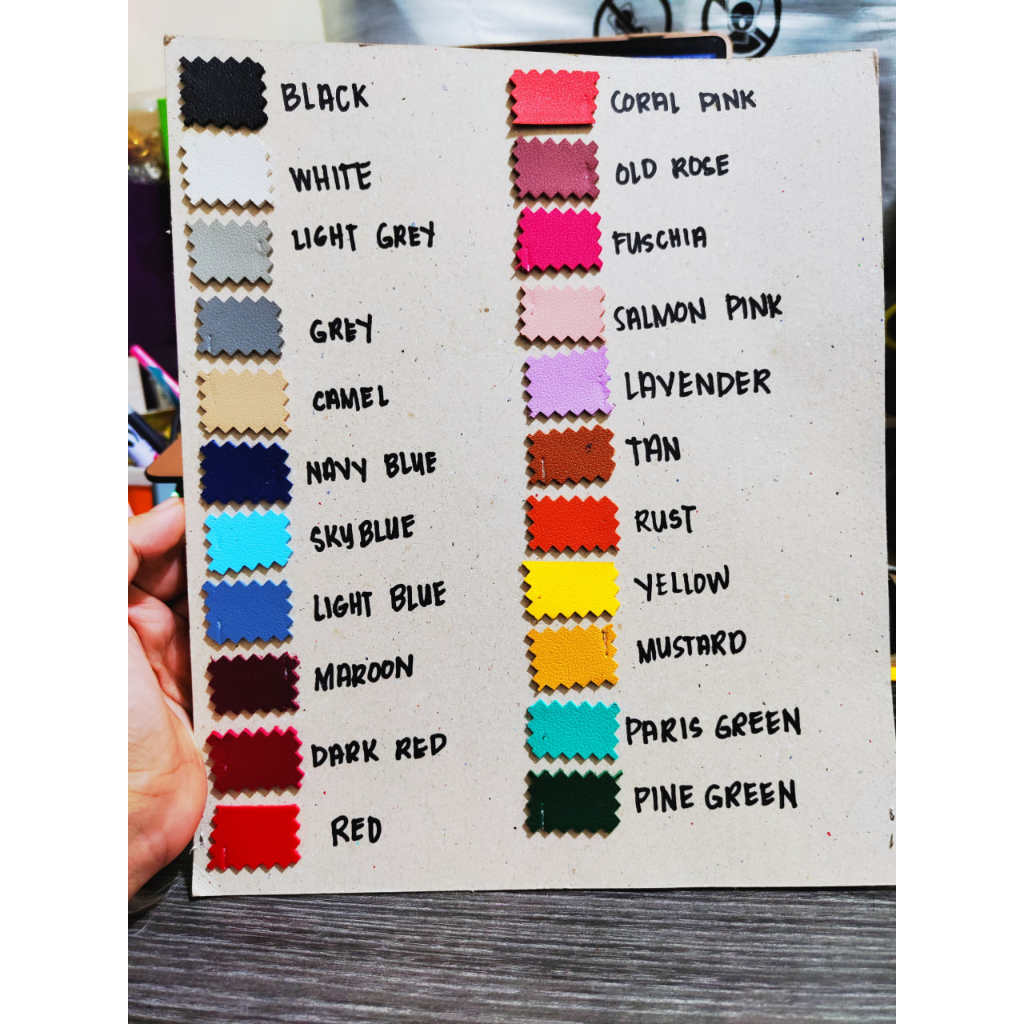 BLACK
WHITE
LIGHT GREY
GREY
CAMEL
NAVY BLUE
SKY BLUE
LIGHT BLUE
MAROON
DARK RED
RED
CORAL PINK
OLD ROSE
FUSCHIA
SALMON PINK
LAVENDER
TAN
RUST
YELLOW
MUSTARD
PARIS GREEN
PINE GREEN